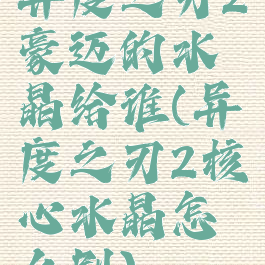 异度之刃2
豪迈的水
晶给谁(异
度之刃2核
心水晶怎
么刷)